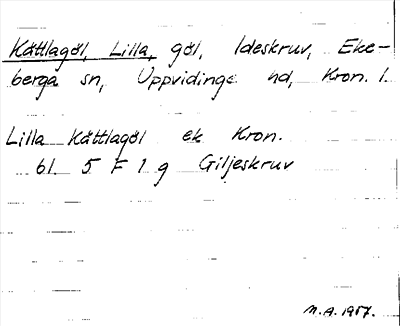 Kättlagöl, Lilla, göl, Ideskruv, Eke-
berga sn, Uppvidinge hd, Kron. l.
Lilla Kättlagöl ek Kron.
bl. 5 F 1 g Giljeskruv
M.A. 1957.